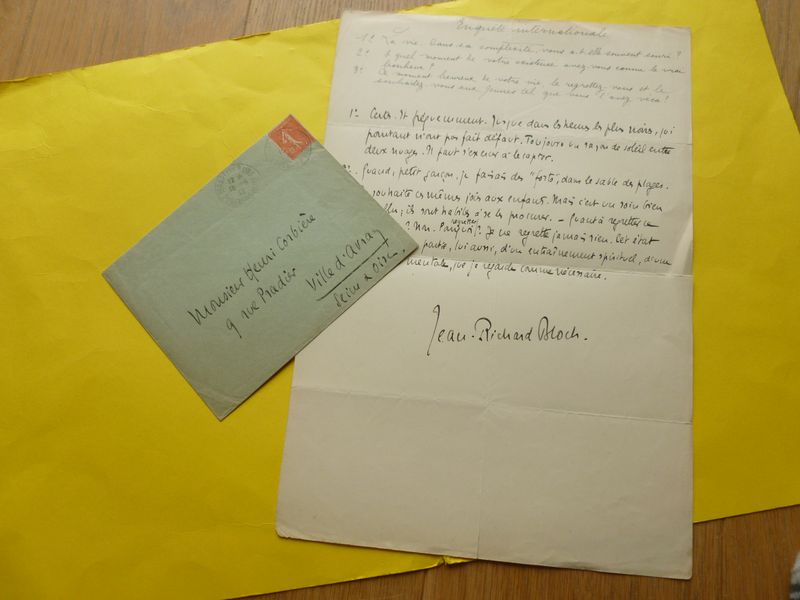 Enquête internationale
1º La vie, dans sa complexité, vous a-t-elle souvent souri ?
2º A quel moment de votre existence avez-vous connu le vrai
bonheur ?
3º Ce moment heureux de votre vie, le regrettez-vous et le
souhaitez-vous aux jeunes tel que vous l'avez vécu ?
1º Certes. Et fréquemment. Jusque dans les heures les plus noires, qui
pourtant n'ont pas fait défaut. Toujours un rayon de soleil entre
deux nuages. Il faut s'exercer à le capter.
Quand, petit garçon, je faisais des "forts", dans le sable des plages.
souhaite ces mêmes joies aux enfants. Mais c'est un soin bien
; ils sont habiles à se les procurer. — Quant à regretter ce
? Non. Pourquoi regretter ? Je ne regrette jamais rien. Cet état
partie, lui aussi, d'un entraînement spirituel, d'une
mentale, que je regarde comme nécessaire.
Jean-Richard Bloch.
Monsieur Henri Corbière
9 rue Pradier
Ville d'Avray
Seine & Oise